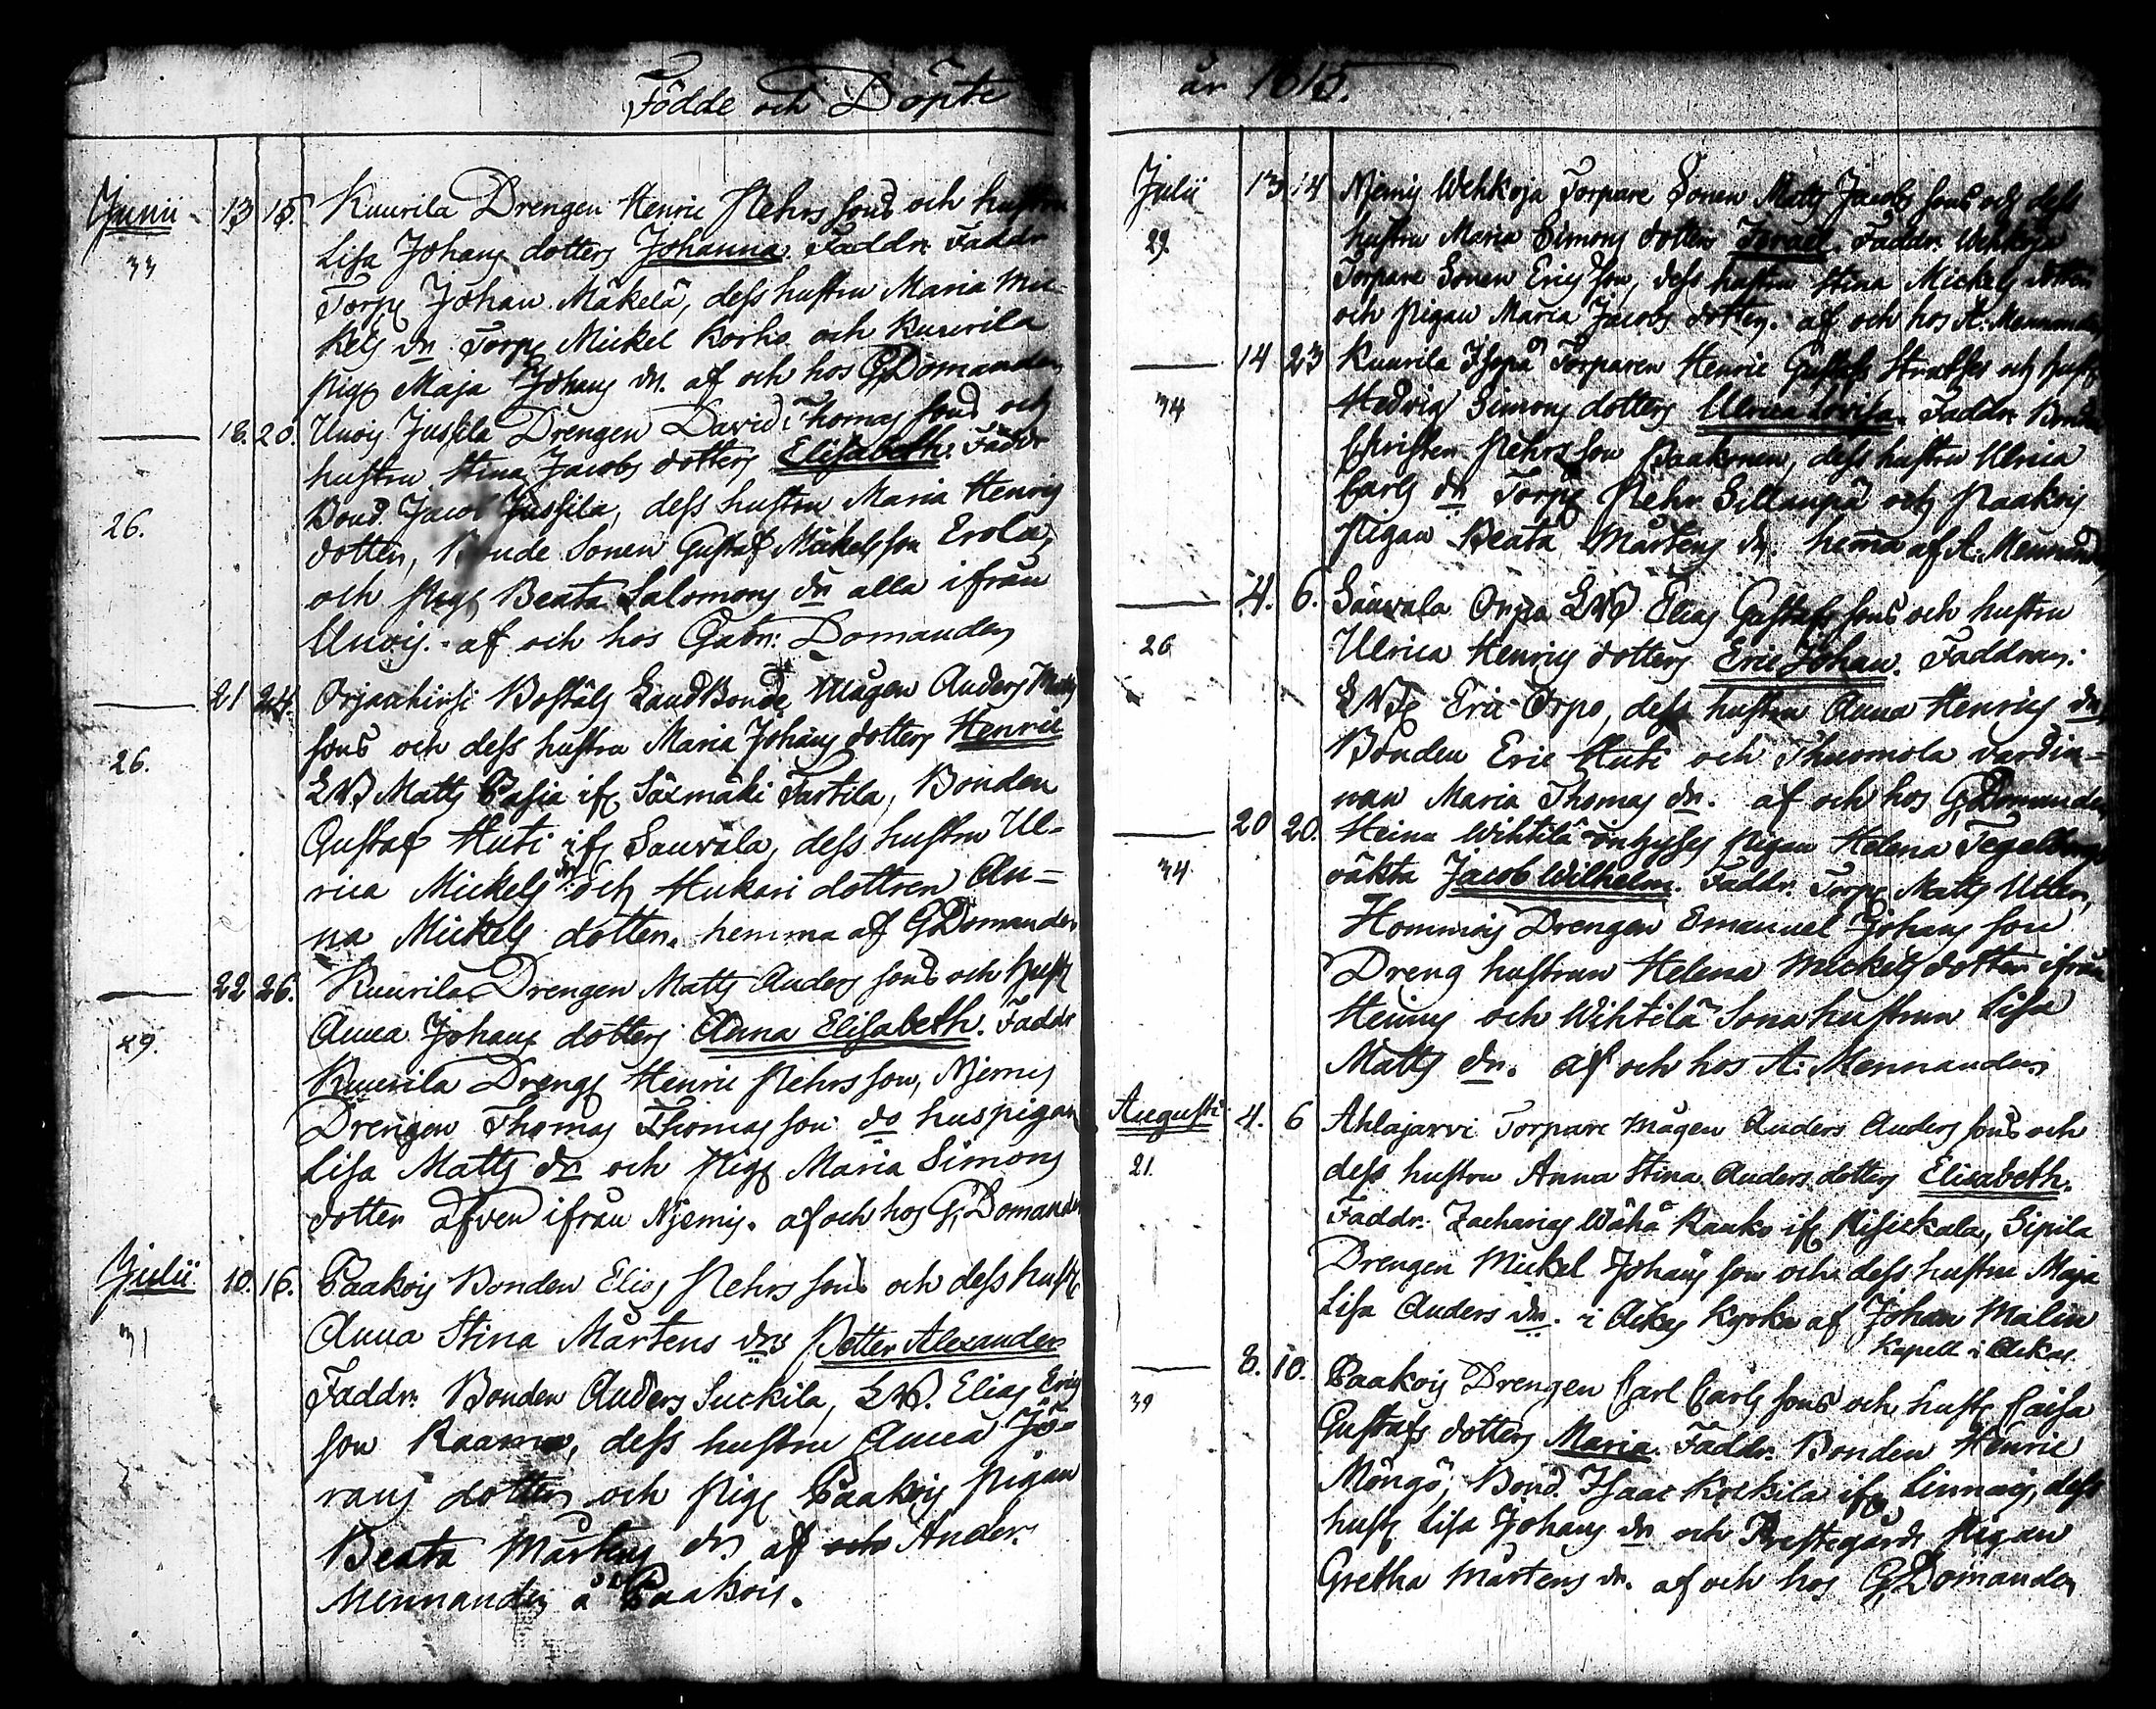 Födde och Döpte
Junii 13 15. Kuurila Drengen Henric Pehrs sons och hustru
33 Lisa Johans dotters Johanna. Faddr. Faddr
Torp. Johan Mäkelä, dess hustru Maria Mic-
kels dr. Torp. Mickel Korho och Kuurila
pig. Maja Johans dr. af och hos G: Domander
18. 20. Unois Jussila Drengen David Thomas sons och
hustru Stina Jacobs dotters Elisabeth. Faddr
26. Bond. Jacob Jussila, dess hustru Maria Henrics
dotter, Bonde Sonen Gustaf Mickels son Erola,
och Pig. Beata Salomons dr alla ifrån
Unois. af och hos Gabr: Domander
21 24. Orjanhirsi Boställs Landbonde Mågen Anders Matts
sons och dess hustru Maria Johans dotters Henric
26. LB Matts Pasia if. Säxmäki Tartila, Bonden
Gustaf Huti if. Sauvala, dess hustru Ul-
rica Mickels dr. och Hukari dottren An-
na Mickels dotter. hemma af G: Domander
22 26. Kuurila Drengen Matts Anders sons och hust.
29. Anna Johans dotters Anna Elisabeth. Faddr
Kuurila Dreng. Henric Pehrs son, Njemis
Drengen Thomas Thomas son do huspigan
Lisa Matts dr och Pig. Maria Simons
dotter äfven ifrån Njemis. af och hos G: Domander
Julii 10. 16. Paakois Bonden Elias Pehrs sons och dess hust.
31 Anna Stina Mårtens drs Petter Alexander
Faddr. Bonden Anders Suckila, LB. Elias Erics
son Raamo, dess hustru Anna Jö-
rans dotter och Pig. Paakois Pigan
Beata Mårtens dr. af och Ander.
Mennander å Paakois.
år 1815.
Julii 13 14 Njemis Wehkoja Torpare Sonen Matts Jacobs sons och dess
29. hustru Maria Simons dotters Israel. Faddr. Wehkoja
Torpare Sonen Erics son, dess hustru Stina Mickels dotter
och Pigan Maria Jacobs dotter. af och hos A: Mennander
14 23 Kuurila Isopä Torparen Henric Gustafs och hust.
34 Hedvig Simons dotters Ulrica Lovisa. Faddr. Bonden
Christer Pehrs son Paakonen, dess hustru Ulrica
Carls dr Torp. Pehr Sillanpä och Paakois
Pigan Beata Mårtens dr. hema af A: Mennander
4. 6. Sauvala Orpo LB Elias Gustafs sons och hustru
26 Ulrica Henrics dotters Eric Johan. Faddrar:
LB. Eric Orpo, dess hustru Anna Henrics dr
Bonden Eric Huti och Thuomola värdin-
nan Maria Thomas dr. af och hos G: Domander
20 20. Heinu Wihtilä inhyses Pigan Helena Tegelbergs
34. oäkta Jacob Wilhelm. Faddr. Torp. Matts Utter,
Hommois Drengen Emanuel Johans son
Dreng hustrun Helena Mickels dotter ifrån
Heinu och Wihtilä Sona hustrun Lisa
Matts dr. af och hos A: Mennander
Augusti 4. 6 Ahlajarvi Torpare Mågen Anders Anders sons och
21. dess hustru Anna Stina Anders dotters Elisabeth.
Faddr. Zacharias Wähä Raako if. Riisickala, Sipila
Drengen Mickel Johans son och dess hustru Maja
Lisa Anders dr. i Ackas kyrka af Johan Malin
Kapell. i Ackas
8. 10. Paakois Drengen Carl Carls sons och hust. Caisa
39 Gustafs dotters Maria. Faddr. Bonden Henric
Möngö, Bond. Isaac Kockila if. Linnais, dess
hust. Lisa Johans dr och Prestegårds Pigan
Gretha Mårtens dr. af och hos G: Domander